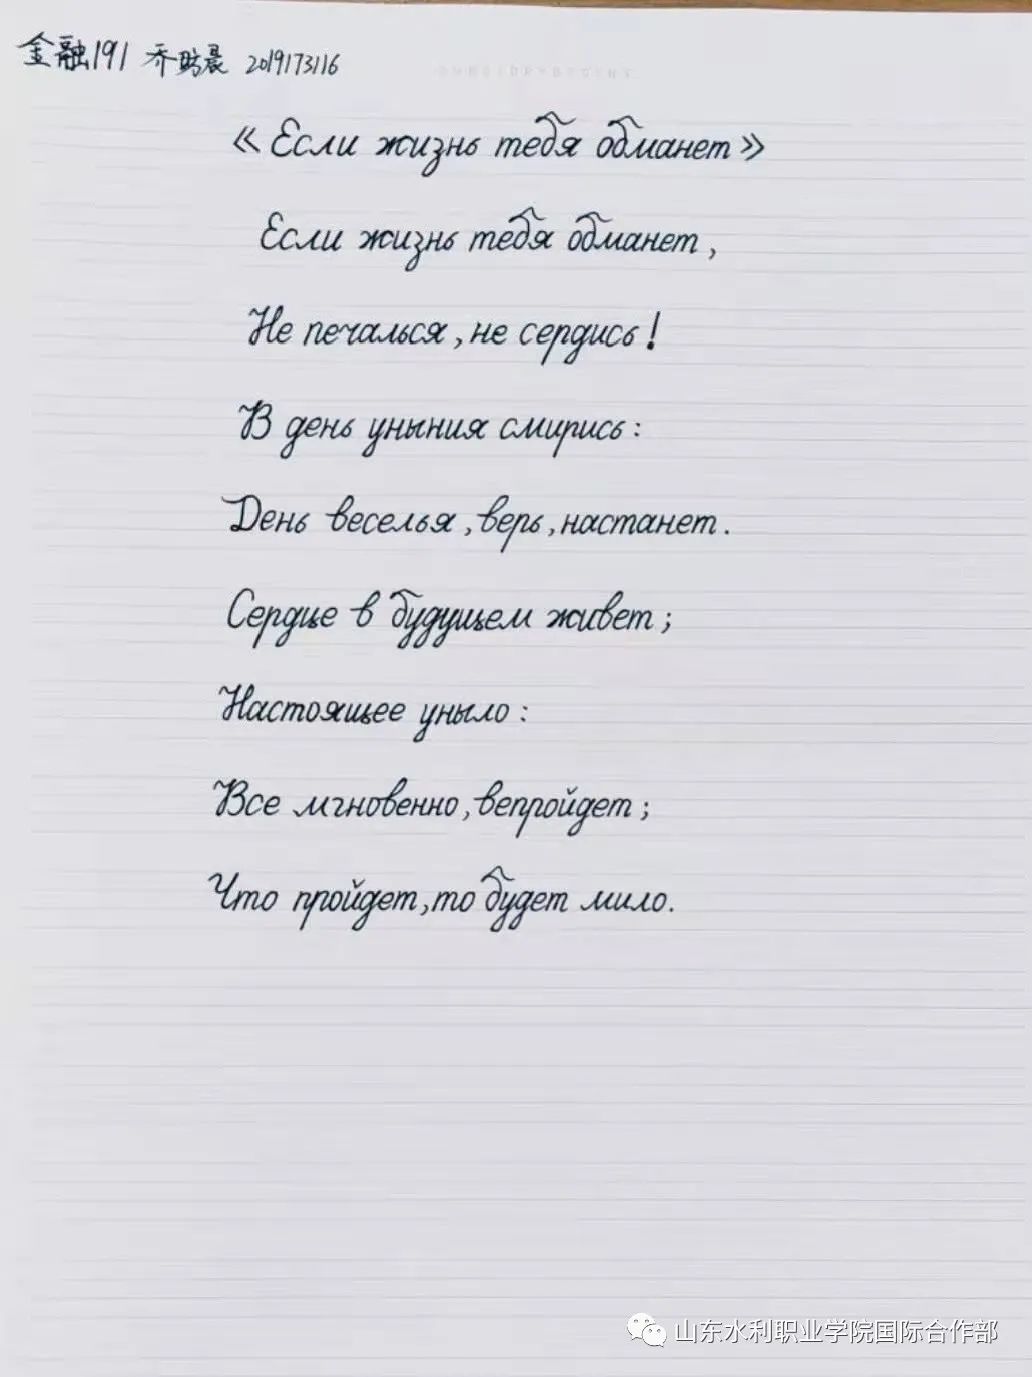 金融191 乔昉晨 2019173116
«Если жизнь тебя обманет»
Если жизнь тебя обманет,
Не печалься, не сердись!
В день уныния смирись:
День веселья, верь, настанет.
Сердце в будущем живет;
Настоящее уныло:
Все мгновенно, вепройдет;
Что пройдет, то будет мило.
山东水利职业学院国际合作部